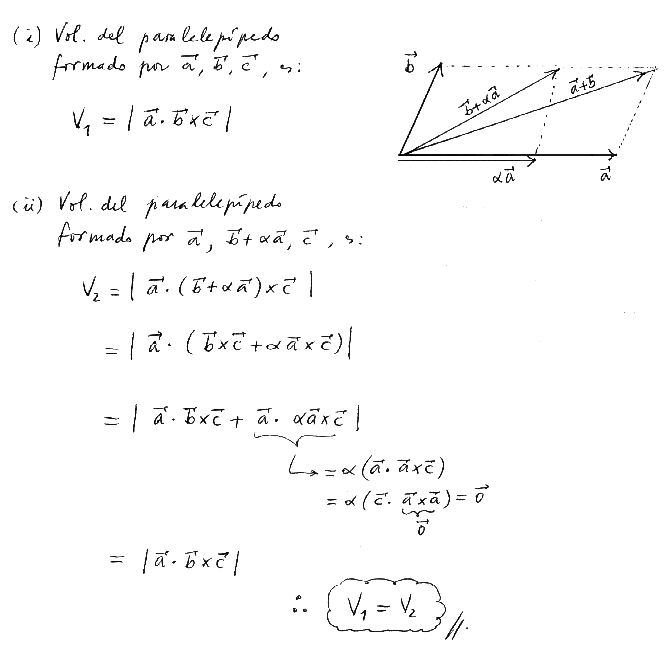 (i) Vol. del paralelepípedo
formado por a⃗, b⃗, c⃗, es:
V₁ = | a⃗ · b⃗ × c⃗ |
b⃗
b⃗+αa⃗
a⃗+b⃗
αa⃗
a⃗
(ii) Vol. del paralelepípedo
formado por a⃗, b⃗+αa⃗, c⃗, es:
V₂ = | a⃗ · (b⃗+αa⃗) × c⃗ |
= | a⃗ · (b⃗×c⃗ + αa⃗×c⃗) |
= | a⃗ · b⃗×c⃗ + a⃗ · αa⃗×c⃗ |
↳ = α(a⃗ · a⃗×c⃗)
= α(c⃗ · a⃗×a⃗) = 0⃗
0⃗
= | a⃗ · b⃗×c⃗ |
∴ V₁ = V₂ //.